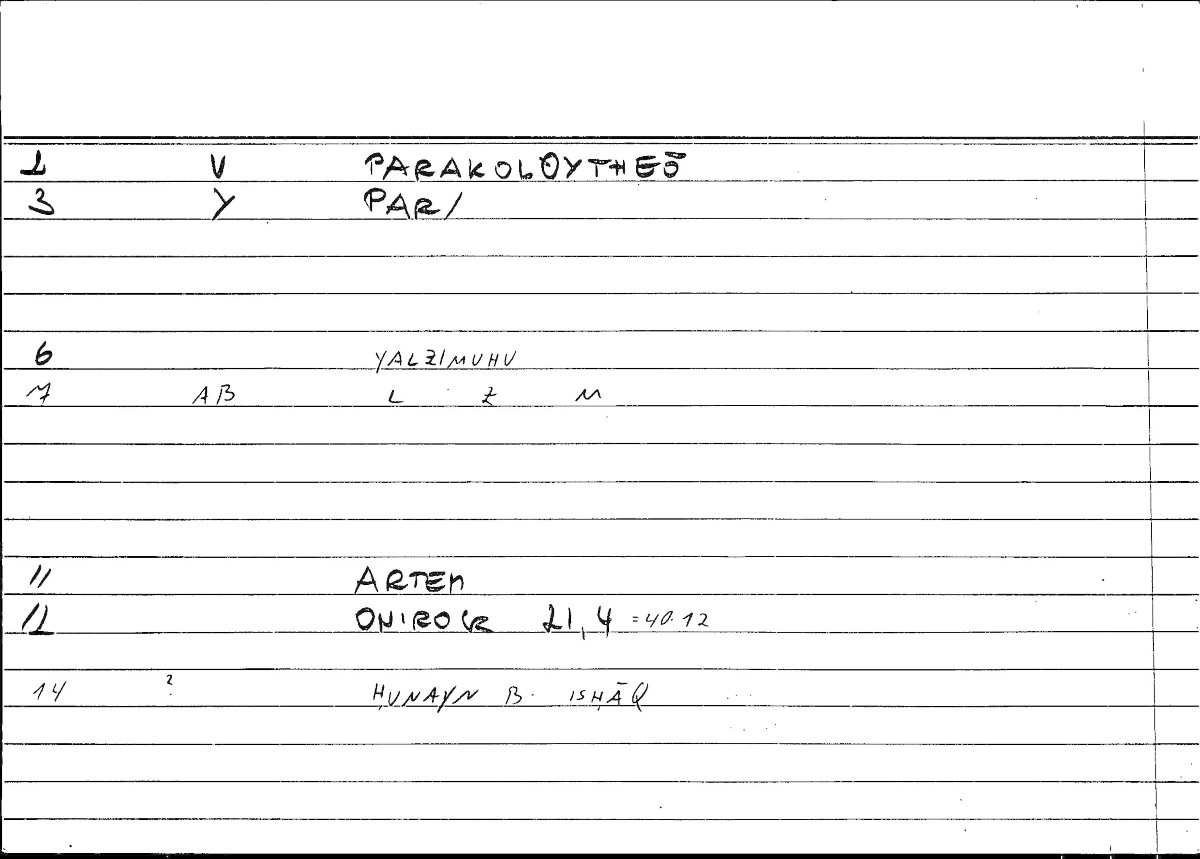 2 V PARAKOLOYTHEŌ
3 Y PAR/
6 YALZIMUHU
7 AB L Z M
11 ARTEM
12 ONIROCR 21,4 =40.12
14 ? ḤUNAYN B. ISḤĀQ